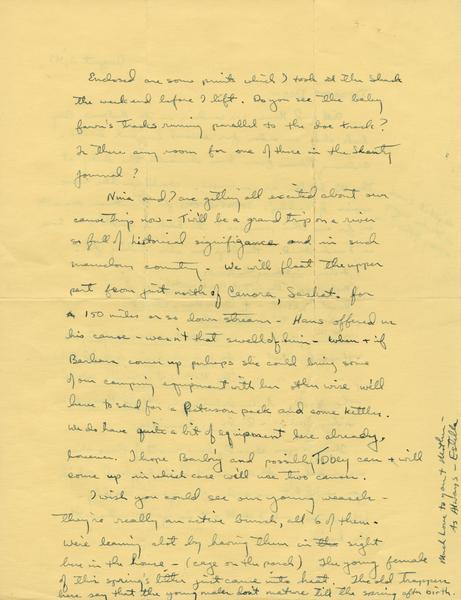 Enclosed are some prints which I took at the Shack
the weekend before I left. Do you see the baby
fawn's tracks running parallel to the doe track?
Is there any room for one of these in the Shanty
Journal?
Nina and I are getting all excited about our
canoe trip now - T'will be a grand trip on a river
so full of historical signifigance and in such
marvelous country - We will float the upper
part from just north of Canora, Saskat. for
150 miles or so down stream - Hans offered us
his canoe - wasn't that swell of him - when & if
Barbara comes up perhaps she could bring some
of our camping equipment with her other wise will
have to send for a Peterson pack and some kettles.
We do have quite a bit of equipment here already,
however. I hope Barby and possibly Tobey can & will
come up in which case we'll use two canoes.
I wish you could see our young weasels -
they're really an active bunch, all 6 of them.
We're learning alot by having them in the right
here in the house - (cage on the porch) The young female
of this spring's litter just came into heat. The old trappers
here say that the young males don't mature till the spring after birth.
Much love to you & Mother -
As Always - Estella